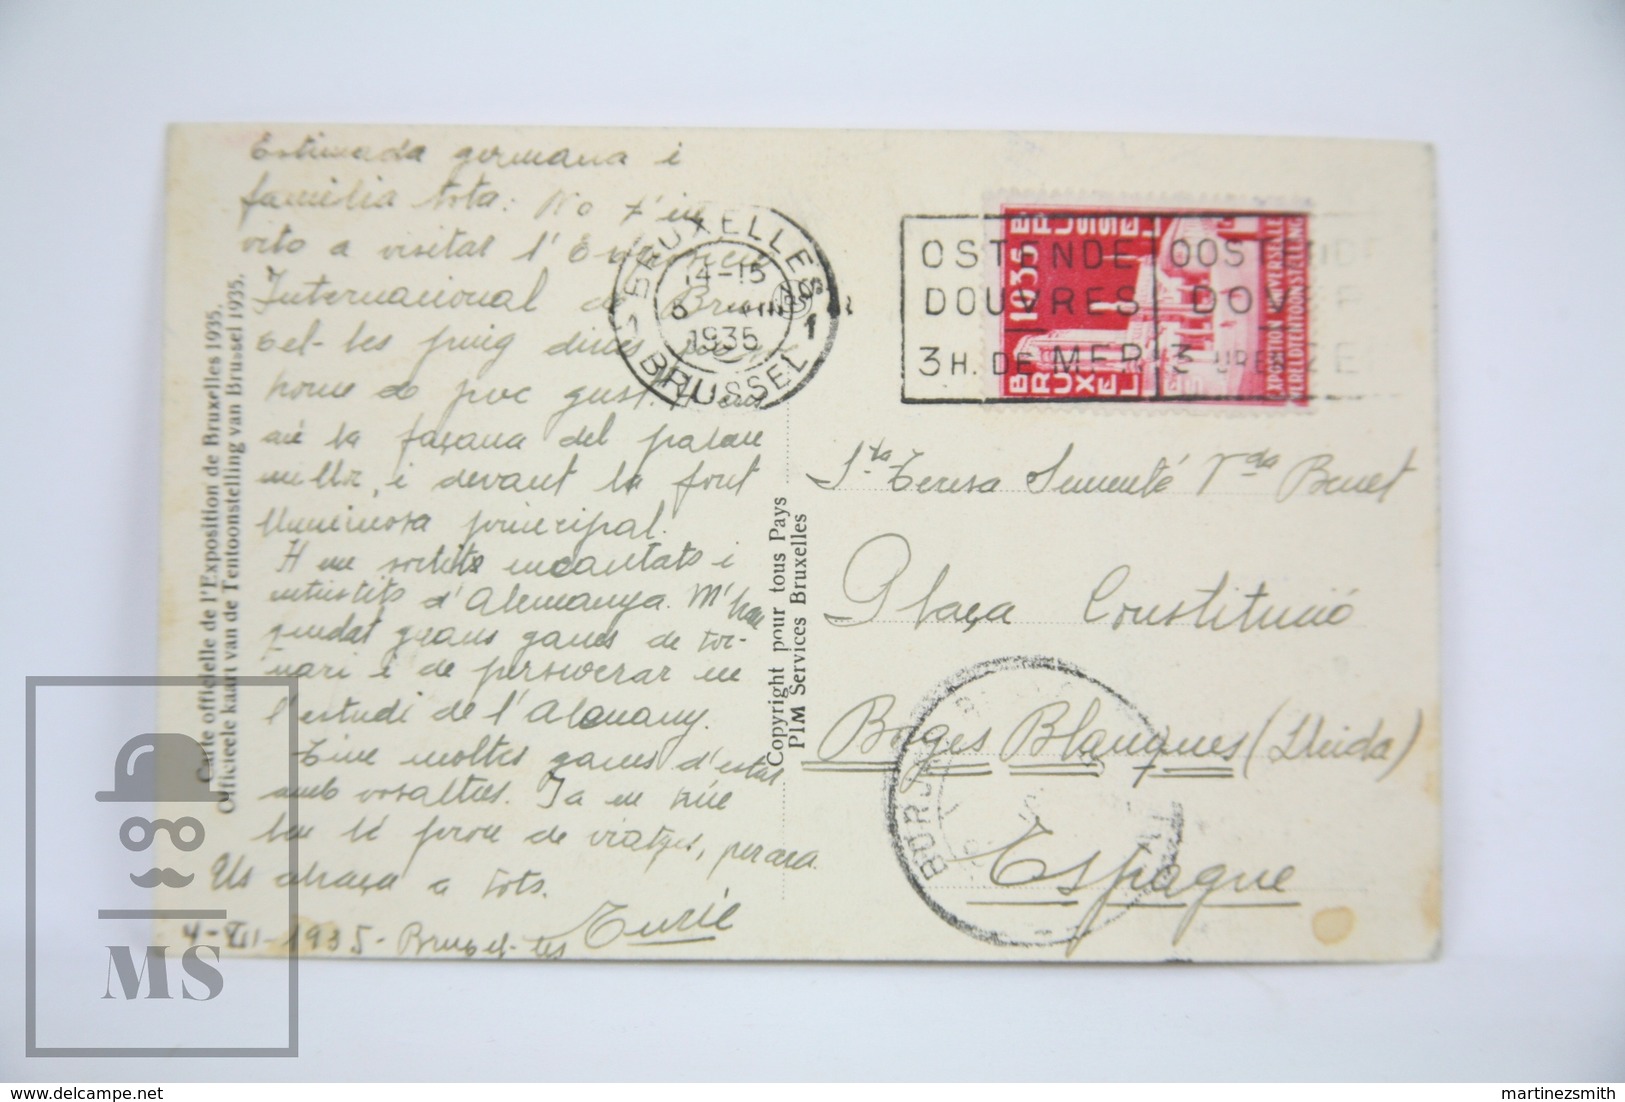 Estimada germana i
familia tota: No t'in
vito a visitar l'Exposició
Internacional de Brus
sel-les puig dius que un
home de poc gust. Heus
ací la façana del palau
millor, i devant la font
lluminosa principal.
Hem sortits encantats i
d'Alemanya. M'han
quedat grans ganes de tor-
nari i de perseverar en
l'estudi de l'Alemany.
Tinc moltes ganes d'estar
amb vosaltres. Ja en
prou de viatges,
Us abraça a tots.
Turié
4-VIII-1935- Brussel-les
Carte officielle de l'Exposition de Bruxelles 1935.
Officieele kaart van de Tentoonstelling van Brussel 1935.
Copyright pour tous Pays
PIM Services Bruxelles
BRUXELLES
14-15
1935
BRUSSEL
1
OSTENDE
DOUVRES
3 H. DE MER
OOSTENDE
3 UREN
BRUSSEL
1935
BRUXELLES
EXPOSITION UNIVERSELLE
WERELDTENTOONSTELLING
Sta Teresa Vda Benet
Plaça Constitució
Borges Blanques (Lleida)
Espagne
MS
http://www.delcampe.net
martinezsmith